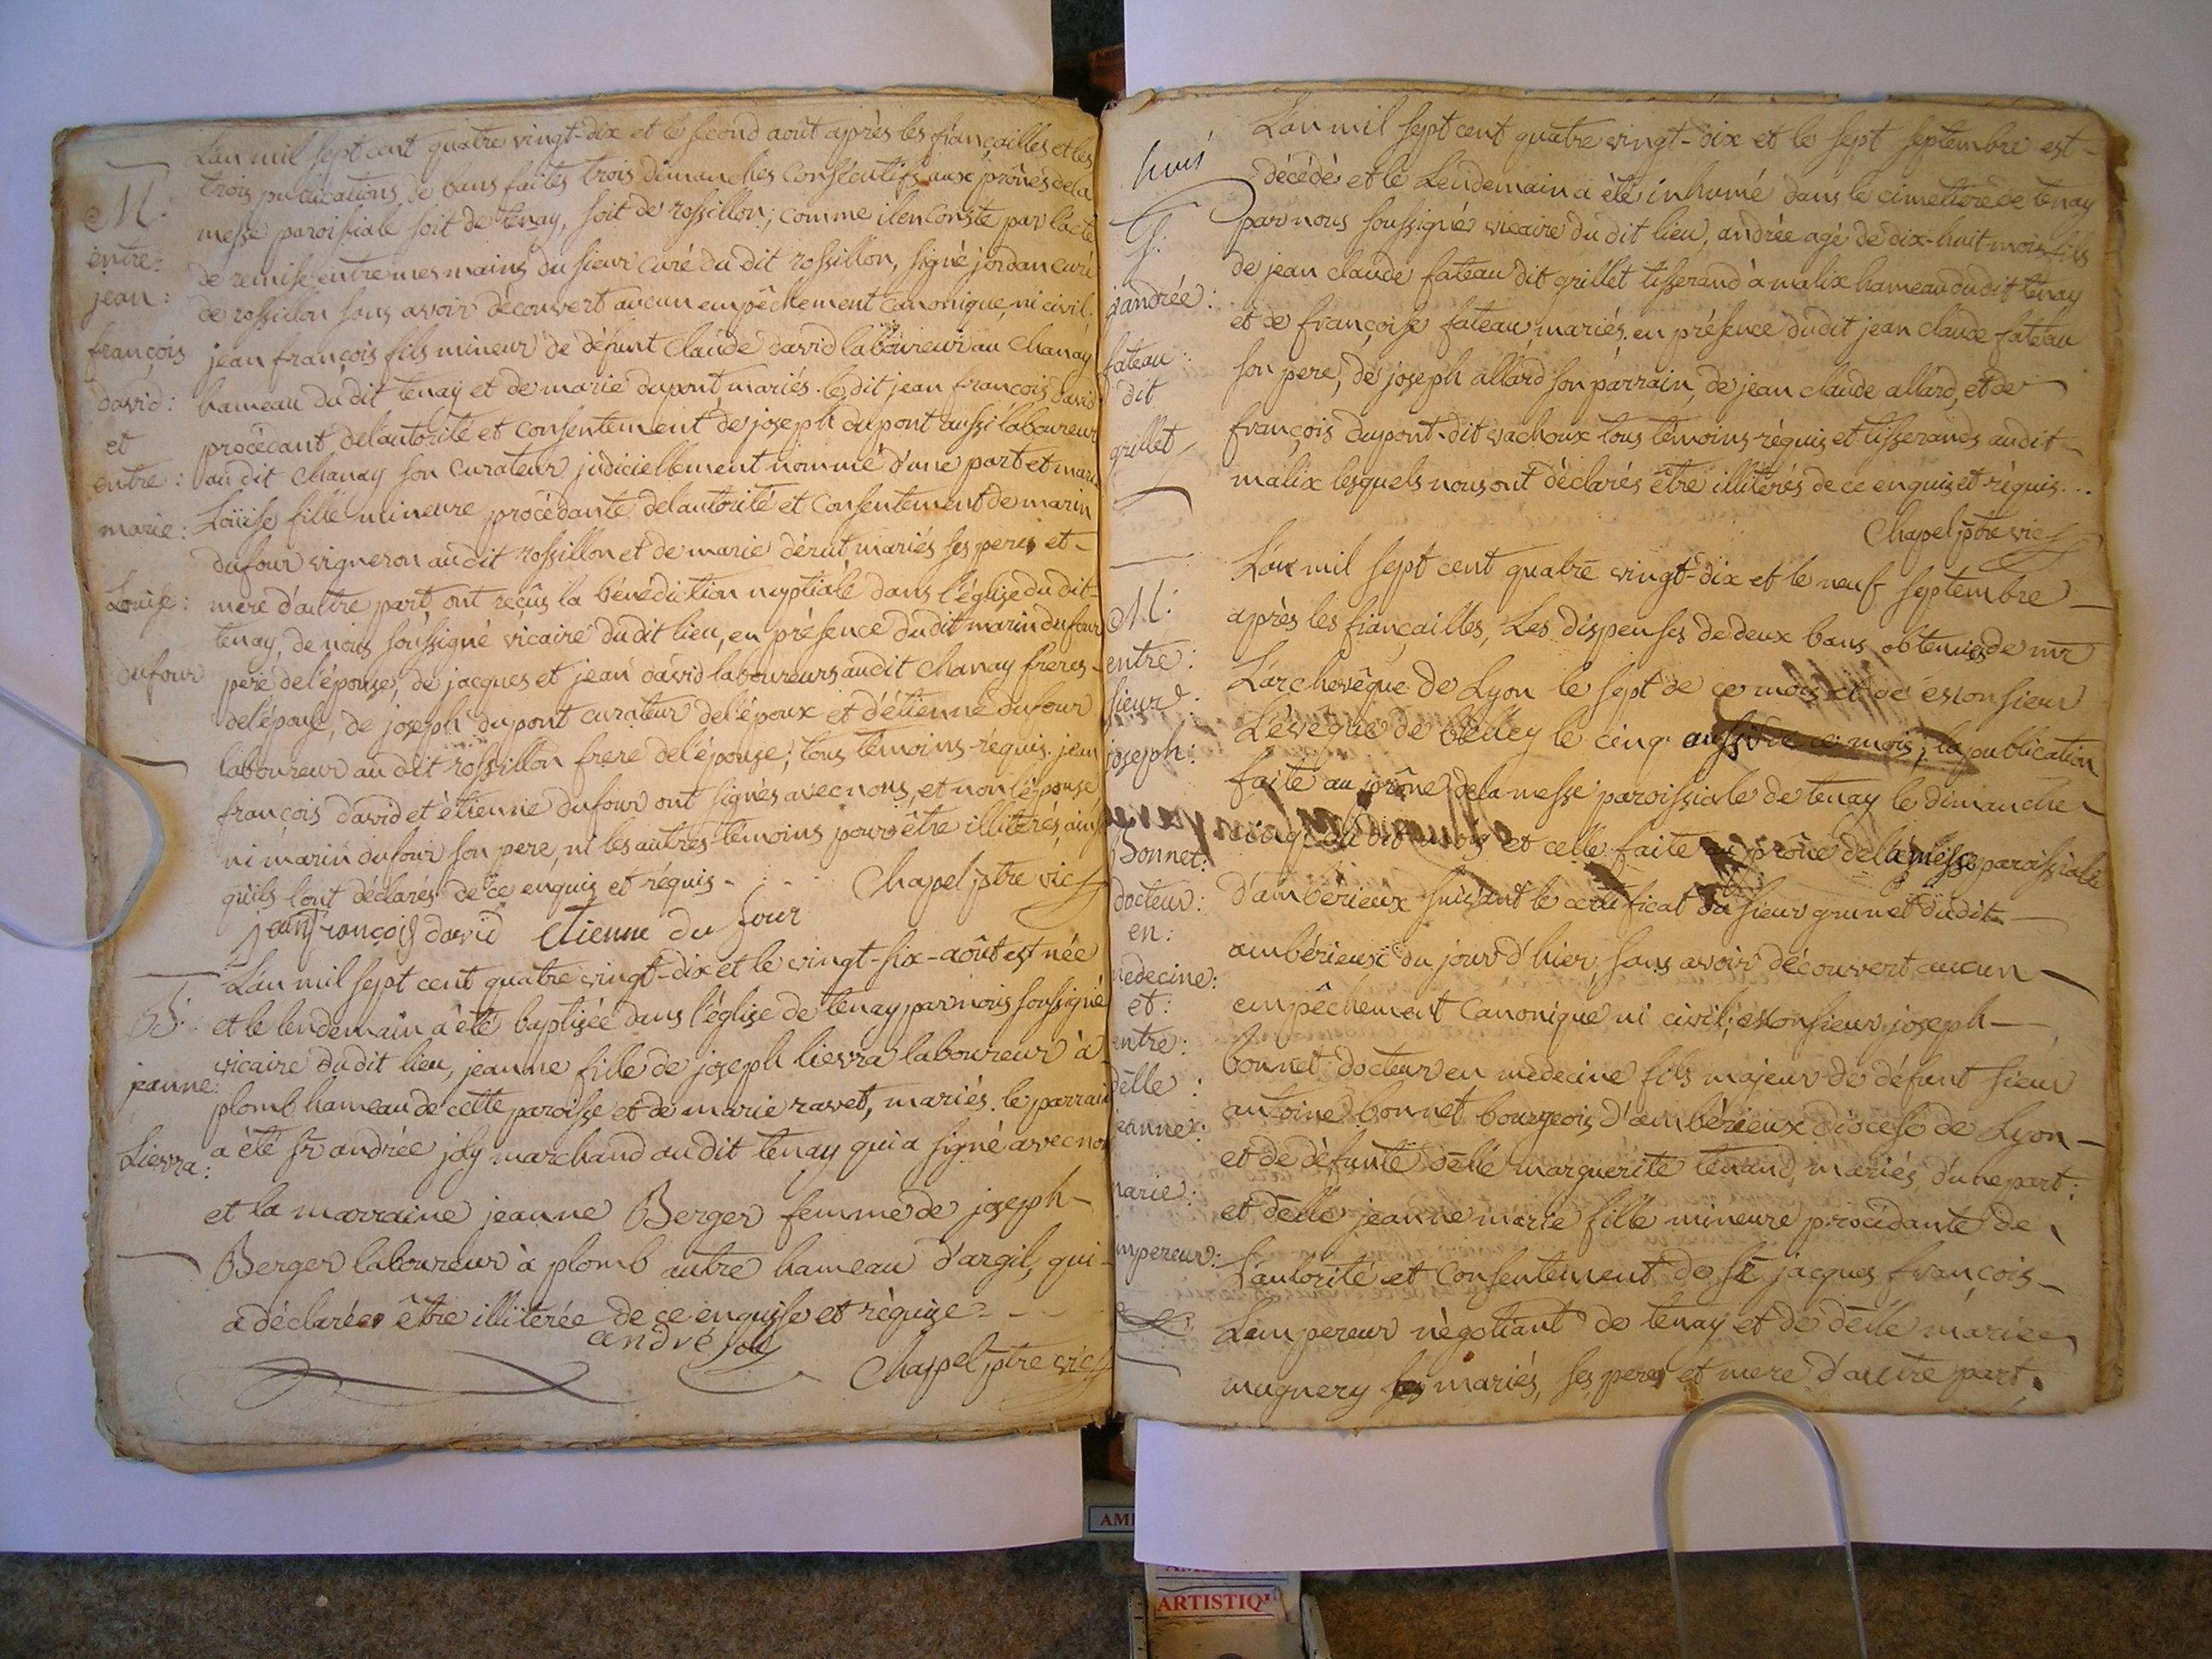 L'an mil sept cent quatre vingt-dix et le second août après les fiançailles et les
trois publications de bans faites trois dimanches consécutifs aux prônes de la
messe paroissiale soit de tenay, soit de rossillon; comme il en conste par l'acte
de remise entre mes mains du sieur curé du dit rossillon, signé jordan curé
de rossillon sans avoir découvert aucun empêchement canonique, ni civil.
jean françois fils mineur de défunt claude david laboureur au chanay
hameau du dit tenay et de marie dupont mariés. le dit jean françois david
procédant de l'autorité et consentement de joseph dupont aussi laboureur
au dit chanay son curateur judiciellement nommé d'une part et marie
Loüise fille mineure procédante de l'autorité et consentement de marin
dufour vigneron au dit rossillon et de marie dérut mariés ses peres et -
mere d'autre part, ont reçûs la bénédiction nuptiale dans l'église du dit-
tenay, de nous soussigné vicaire du dit lieu, en présence du dit marin dufour
pere de l'épouse, de jacques et jean david laboureurs au dit chanay freres -
de l'époux, de joseph dupont curateur de l'époux et d'étienne dufour
laboureur au dit rossillon frere de l'épouse; tous témoins réquis. jean
françois david et étienne dufour ont signés avec nous, et non l'épouse
ni marin dufour son pere, ni les autres témoins pour être illitérés, ainsi
qu'ils l'ont déclarés de ce enquis et réquis - . - . Chapel ptre vic
jean françois david etienne du four
M:
entre:
jean:
françois
david:
et
entre:
marie:
Louise:
dufour
L'an mil sept cent quatre vingt-dix et le vingt-six-août est née
et le lendemain a été baptisée dans l'église de tenay par nous soussigné
vicaire du dit lieu, jeanne fille de joseph lievra laboureur à
plomb hameau de cette paroisse et de marie ravet, mariés. le parrain
a été sr andrée joly marchand au dit tenay qui a signé avec nous
et la marraine jeanne Berger femme de joseph -
Berger laboureur à plomb autre hameau d'argil, qui -
a déclarée être illitérée de ce enquise et réquise - - -
andré joly
Chapel ptre vic
B:
jeanne:
Lievra:
L'an mil sept cent quatre vingt-dix et le sept septembre est -
décédé et le Lendemain a été inhumé dans le cimetiere de tenay
par nous soussigné vicaire du dit lieu, andrée agé de dix-huit mois fils
de jean claude fateau dit grillet tisserand à malix hameau du dit tenay
et de françoise fateau, mariés. en présence du dit jean claude fateau
son pere, de joseph allard son parrain, de jean claude allard, et de -
françois dupont dit vachoux tous témoins réquis et tisserands au dit -
malix lesquels nous ont déclarés être illitérés de ce enquis et réquis...
Chapel ptre vic
huit
S:
andrée:
fateau:
dit
grillet
L'an mil sept cent quatre vingt-dix et le neuf septembre -
après les fiançailles, Les dispenses de deux bans obtenues de mr
L'archevêque de Lyon le sept de ce mois et de Monsieur
L'évêque de belley le cinq aussi de ce mois; la publication
faite au prône de la messe paroissiale de tenay le dimanche -
cinq du dit mois et celle faite au prône de la messe paroissiale
d'ambérieux suivant le certificat du sieur grunet du dit -
ambérieux du jour d'hier, sans avoir découvert aucun -
empêchement canonique ni civil; Monsieur joseph -
bonnet docteur en medecine fils majeur de défunt sieur
antoine bonnet bourgeois d'ambérieux diocese de Lyon -
et de défunte délle marguerite tenand, mariés, d'une part;
et délle jeanne marie fille mineure procédante de
L'autorité et consentement de sr jacques françois -
Lempereur négotiant de tenay et de délle marie
mugnery mariés, ses peres et mere d'autre part,
M:
entre:
sieur:
joseph:
Bonnet:
docteur:
en:
medecine:
et:
entre:
délle:
jeanne:
marie:
mpereur:
AMI
ARTISTIQ